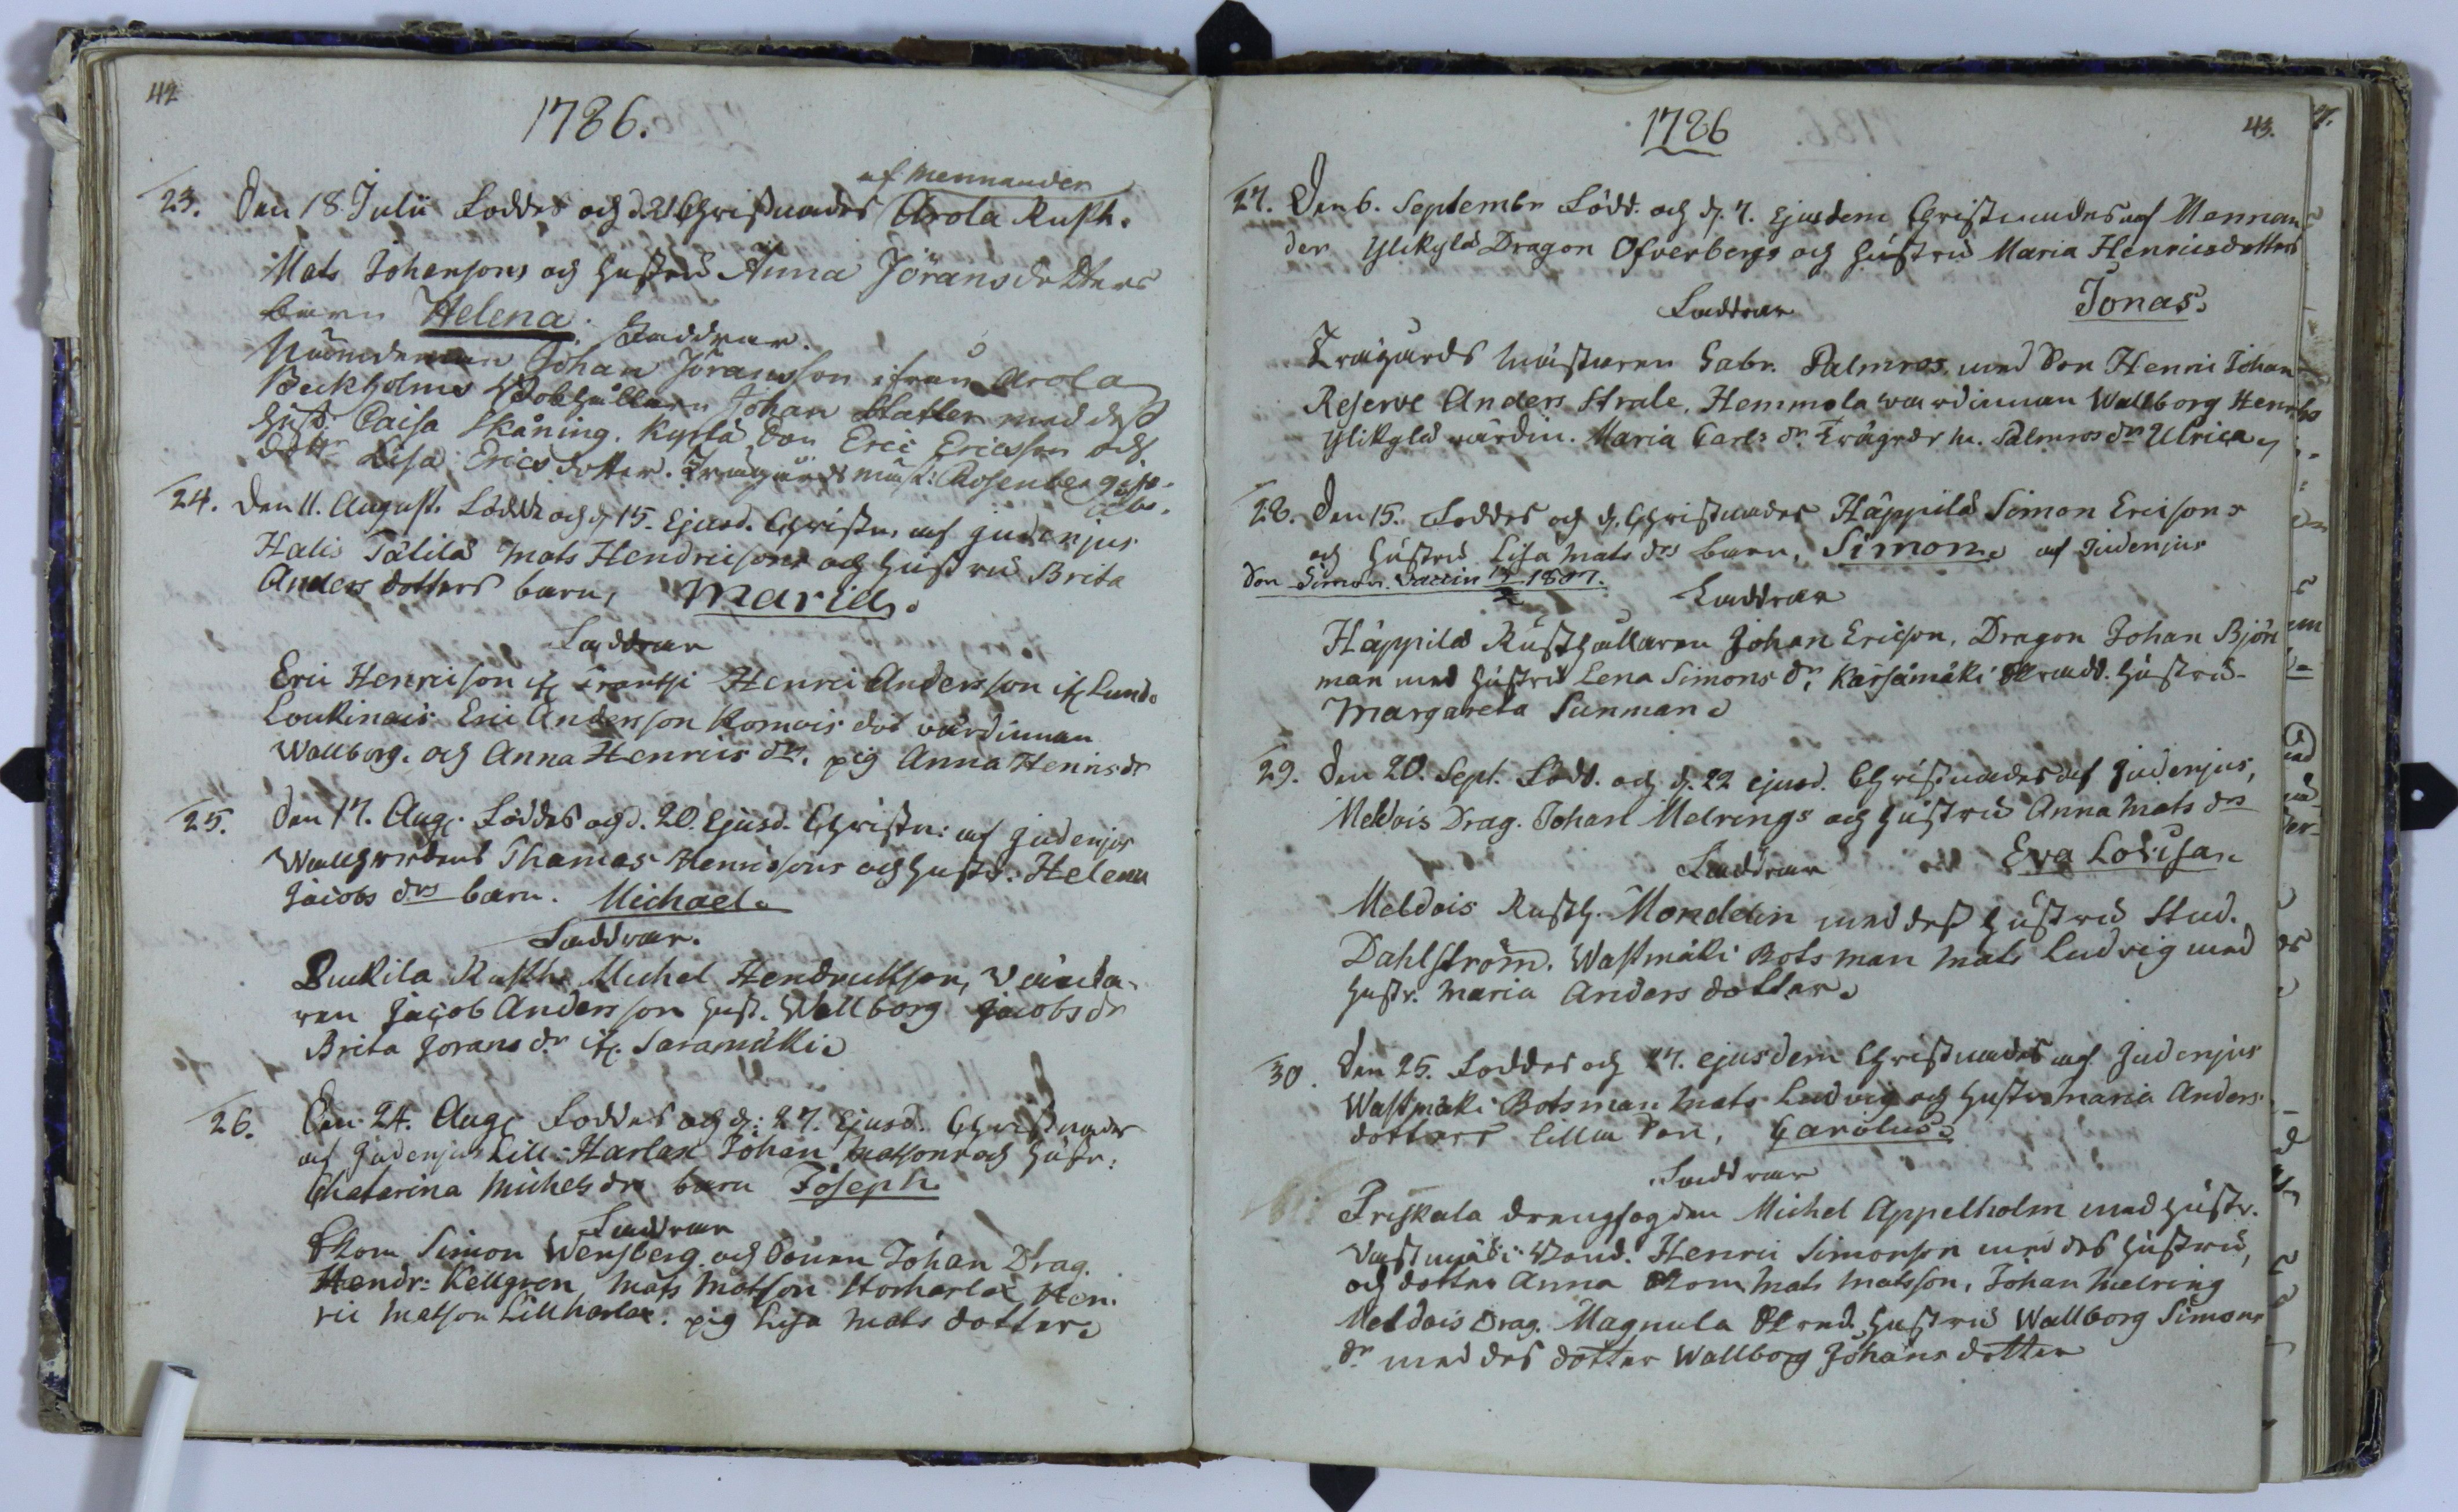 42
1786.
af Mennander
23. Den 18 Julii Föddes och d. 21 Christnades Arola Rusth.
Mats Johansons och hustru Anna Jöransdotters
barn Helena. Faddrar.
Nämdeman Johan Jöransson ifrån Arola
Beckholms Johan Statler med dess
hust. Caisa Skåning. Kyrlä Son Eric Ericsson och
dottr Lisa Ericsdotter. Trägårds mäst: Rosenberg
24. Den 11. August. Födde och d. 15. Ejusd. Christn. af Judenjus
Halis Tälilä Mats Hendricsons och hustru Brita
Anders dotters barn, Maria.
Faddrar
Eric Henricson if. Frantsi Henric Andersson if. Lundo
Loukinais Eric Andersson Komois värdinnan
Wallborg. och Anna Henrics dr. pig Anna Henricsdr
25. Den 17. Aug. Föddes och d. 20. Ejusd. Christn: af Judenjus
Thomas Henricsons och hustr. Helena
Jacobs drs barn. Michael.
Faddrar.
Rusth. Michel Hendricksson, Vända-
ren Jacob Andersson hust. Wallborg Jacobsdr
Brita Jorans dr if. Saramäki.
26. Den 24. Aug. Föddes och d: 27. Ejusd. Christnades
af Judenjus Lill-Harlax Johan Matsons och hustr:
Chatarina Michelsdrs barn Joseph
Faddrar
Skom Simon Wensberg. och Sonen Johan Drag.
Hendr: Kellgren Mats Matson Storharlax Hen-
ric Matson Lillharlax. pig Lisa Mats dotter.
1786
43.
27. Den 6. Septembr Född. och d. 7. Ejusdem Christnades af Mennan
der Ylikylä Dragon Öfverbergs och hustru Maria Henricsdotters
Faddrar Jonas.
Trägårds mästaren Gabr. Palmros, med Son Henric Johan
Reserve Anders Strale, Hemmola wärdinnan Wallborg Henrics
Ylikylä värdin. Maria Carls dr. Trägrdr m. Palmros dr Ulrica
28. Den 15. Föddes och d. Christnades Häppilä Simon Ericsons
och hustru Lisa Mats drs barn, Simon. af Judenjus
Son Simon. Vaccin 1807.
Faddrar
Häppilä Rusthållaren Johan Ericson, Dragon Johan Björk
man med hustru Lena Simons dr, Kärsämäki hustru
Margareta Sunman.
29. Den 20. Sept. Född. och d. 22 ejusd. Christnades af Judenjus,
Meldois Drag. Johan Melrings och hustru Anna Mats drs
Faddrar Eva Lovisa.
Meldois Rusth. Mondelin med dess hustru Stud.
Dahlström. Wastmäki Botsman Mats Ludvig med
hustr. Maria Anders dotter.
30. Den 25. Föddes och 27. ejusdem Christnades af Judenjus
Wastmäki Botsman Mats Ludvig och hustr. Maria Anders
dotters lilla son, Carolus.
Faddrar
Friskala drengfogden Michel Appelholm med hustr.
Vastmäki Bond. Henric Simonson med des hustru,
och dotter Anna Skom. Mats Matsson, Johan Melring
Meldois Drag. Magnula hustru Wallborg Simons
dr med des dotter Wallborg Johans dotter